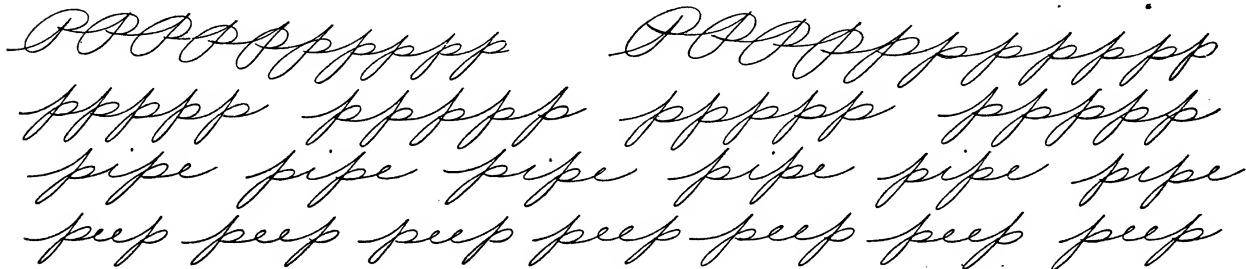 PPPPPppppp PPPPppppppp
ppppp ppppp ppppp ppppp
pipe pipe pipe pipe pipe pipe
peep peep peep peep peep peep peep